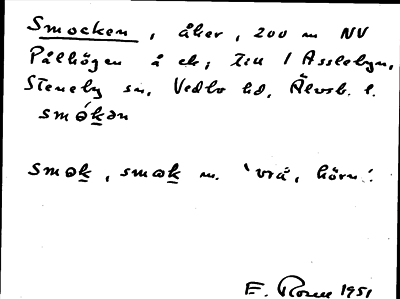 Smocken, åker, 200 m NV
Pålhögen å ek; till 1 Asslebyn,
Steneby sn, Vedbo hd, Älvsb. l.
smókən
smok, smɷk m. 'vrå, hörn'.
E. Rosell 1951